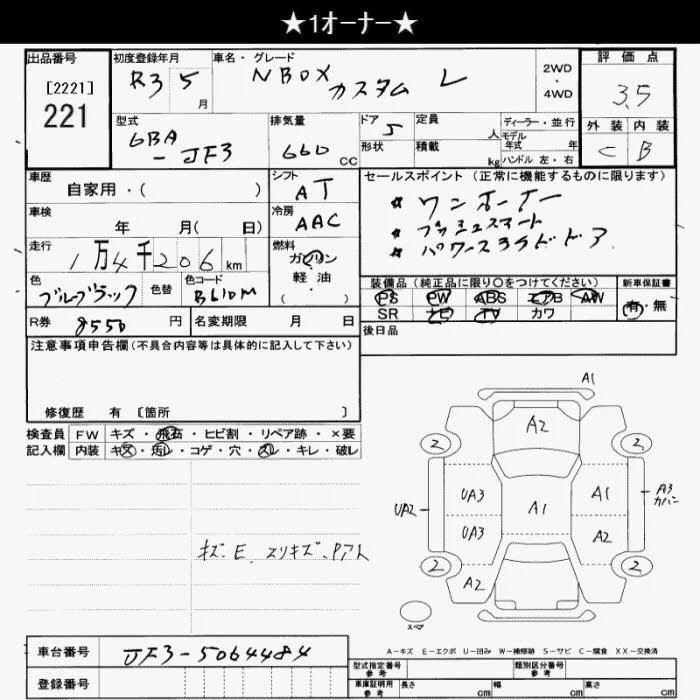 ★1オーナー★
出品番号
[2221]
221
初度登録年月
R3 5 月
車名・グレード
NBOX カスタム L
2WD
・
4WD
評価点
3.5
外装 内装
C B
型式
6BA
-JF3
排気量
660 cc
ドア
5
形状
定員
人
積載
kg
ディーラー・並行
モデル
年式 年
ハンドル 左・右
車歴
自家用・( )
シフト
AT
セールスポイント (正常に機能するものに限ります)
* ワンオーナー
* プッシュスタート
* パワースライドドア
車検
年 月( 日)
冷房
AAC
走行
1万4千206 km
燃料
ガソリン
軽・油
( )
色
ブルーブラック
色替
色コード
装備品 (純正品に限り○をつけてください)
新車保証書
PS PW ABS エアB AW
SR ナビ TV カワ
有・無
R券 8550 円
名変期限 月 日
後日品
注意事項申告欄 (不具合内容等は具体的に記入して下さい)
修復歴 有 〔箇所 〕
検査員 FW キズ・飛石・ヒビ割・リペア跡・×要
記入欄 内装 キズ・汚レ・コゲ・穴・スレ・キレ・破レ
キズ・E、スリキズ、Pアト
A1
A2
2 2
UA3 A1 A3
カバー
UA2 A1
UA3 A2
2 2
A2
スペア
A-キズ E-エクボ U-凹み W-補修跡 S-サビ C-腐食 XX-交換済
車台番号 JF3-5064484
登録番号
型式指定番号
参考
類別区分番号
参考
車庫証明用
参考
長さ cm 幅 cm 高さ cm